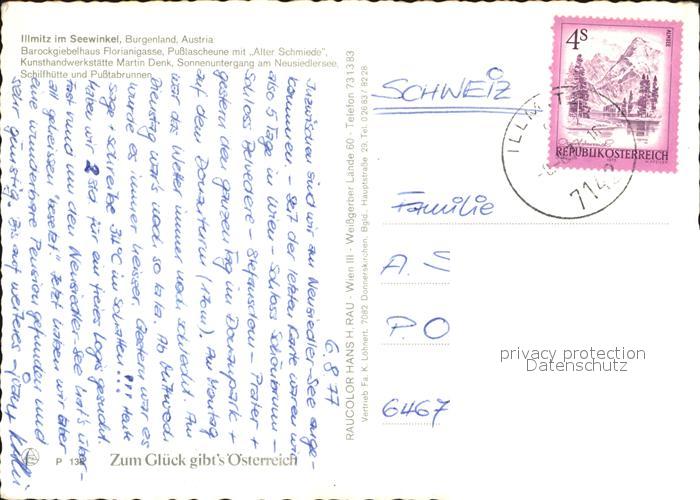 Illmitz im Seewinkel, Burgenland, Austria
Barockgiebelhaus Florianigasse, Pußtascheune mit „Alter Schmiede",
Kunsthandwerkstätte Martin Denk, Sonnenuntergang am Neusiedlersee,
Schilfhütte und Pußtabrunnen
6.8.77
Inzwischen sind wir am Neusiedler-See ange-
kommen - seit der letzten Karte waren wir
also 5 Tage in Wien - Schloss Schönbrunn -
Schloss Belvedere - Stefansdom - Prater +
gestern den ganzen Tag im Donaupark +
auf dem Donauturm (170m). Am Montag
war das Wetter immer noch schlecht. Am
Dienstag war's noch so lala. Ab Mittwoch
wurde es immer heisser. Gestern war es
sage + schreibe 34°C im Schatten...!!! Heute
haben wir 2 Std für ein freies Logis gesucht.
Fast rund um den Neusiedler-See hat's über-
all geheissen "besetzt". Jetzt haben wir aber
eine wunderbare Pension gefunden und
sehr günstig. Bis auf weiteres
P 13
Zum Glück gibt's Österreich
RAUCOLOR HANS H. RAU - Wien III - Weißgerber Lände 60 - Telefon 731383
Vertrieb: Fa. K. Löhnert, 7082 Donnerskirchen, Bgld., Hauptstraße 29, Tel. 02683/8228
4s
ALMSEE
REPUBLIK ÖSTERREICH
ILLM
7142
SCHWEIZ
Familie
A. S
P. O
6467
privacy protection
Datenschutz